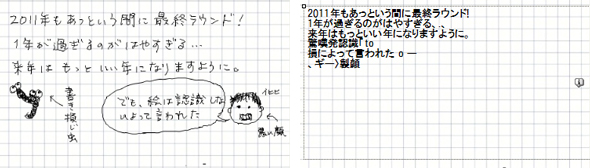 2011年もあっという間に最終ラウンド!
1年が過ぎるのがはやすぎる...
来年は もっといい年になりますように。
書き損じ虫
でも、絵は認識しな
いよって言われた
イヒヒ
悪い顔
2011年もあっという間に最終ラウンド!
1年が過ぎるのがはやすぎる、、
来年はもっといい年になりますように。
驚嘆発認識「to
損によって言われた o ー
、ギー)製顔